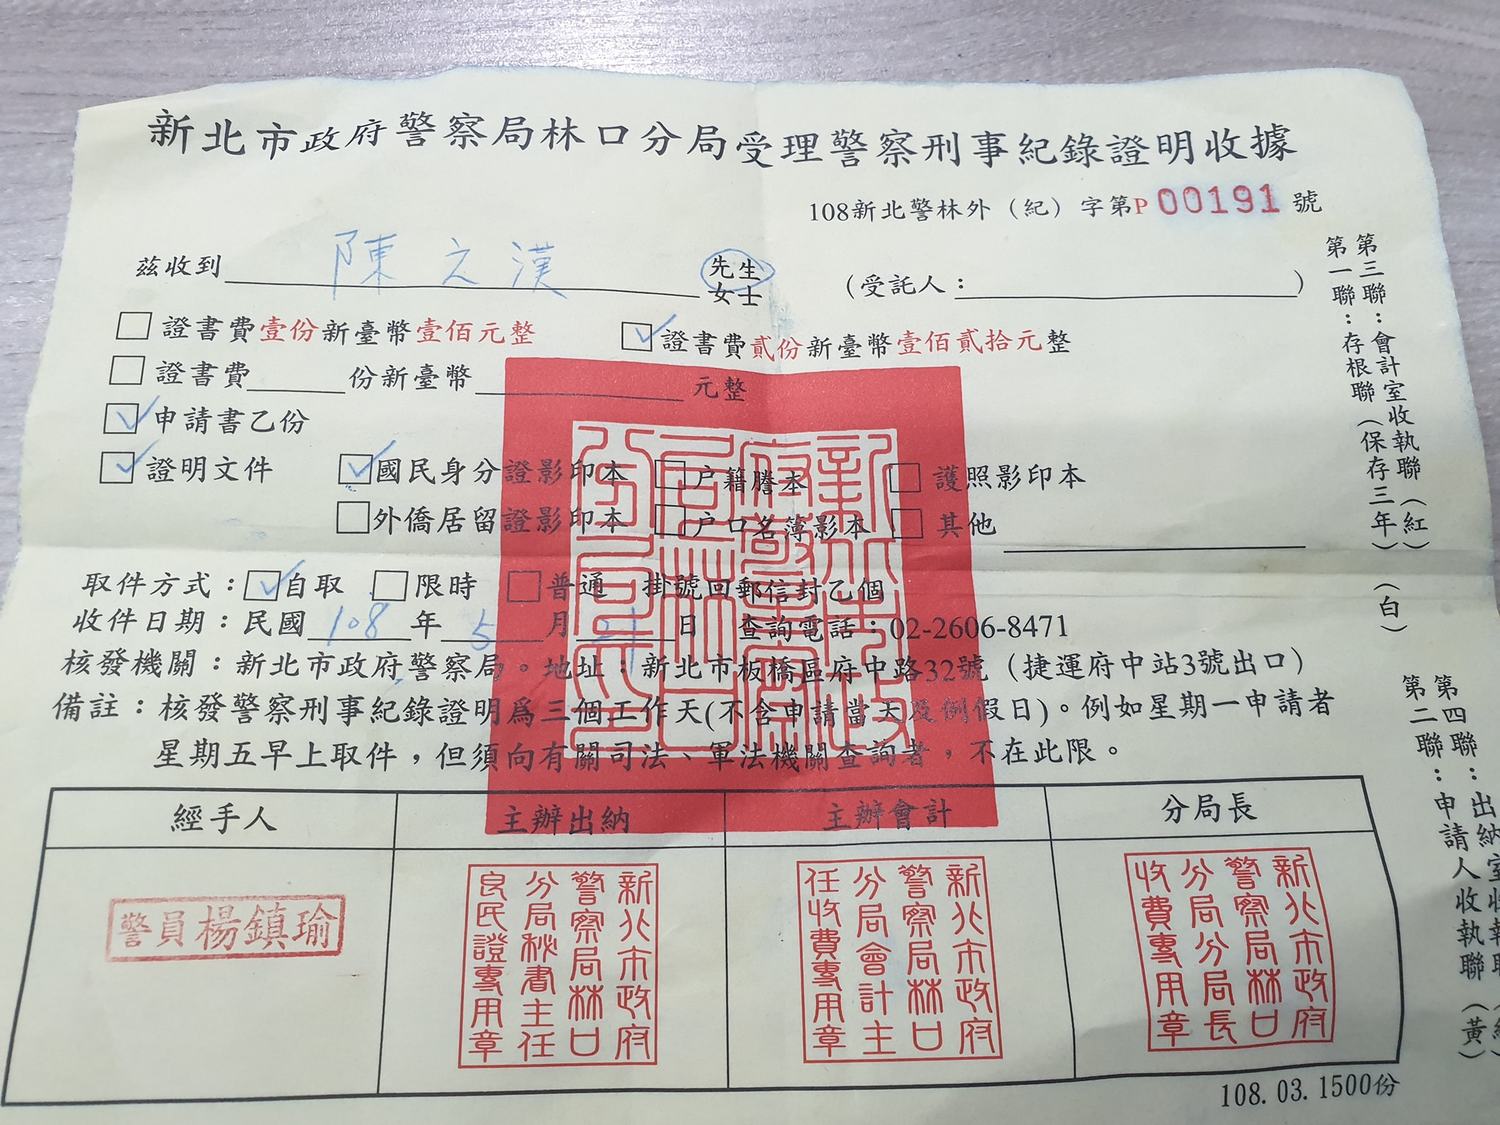 新北市政府警察局林口分局受理警察刑事紀錄證明收據
108新北警林外（紀）字第P 00191 號
茲收到 陳之漢 先生
女士
（受託人：　　　）
□證書費壹份新臺幣壹佰元整 ☑證書費貳份新臺幣壹佰貳拾元整
□證書費　　份新臺幣　　元整
☑申請書乙份
☑證明文件 ☑國民身分證影印本 □戶籍謄本 □護照影印本
□外僑居留證影印本 □戶口名簿影本 □其他
取件方式：☑自取 □限時 □普通 掛號回郵信封乙個
收件日期：民國108年5月21日 查詢電話：02-2606-8471
核發機關：新北市政府警察局。地址：新北市板橋區府中路32號（捷運府中站3號出口）
備註：核發警察刑事紀錄證明為三個工作天(不含申請當天及例假日)。例如星期一申請者
星期五早上取件，但須向有關司法、軍法機關查詢者，不在此限。
經手人 主辦出納 主辦會計 分局長
警員楊鎮瑜
新北市政府
警察局林口
分局秘書主任
良民證專用章
新北市政府
警察局林口
分局會計主
任收費專用章
新北市政府
警察局林口
分局分局長
收費專用章
第三聯：會計室收執聯（紅）
第一聯：存根聯（保存三年）（白）
第四聯：出納室收執聯
第二聯：申請人收執聯（黃）
108.03.1500份